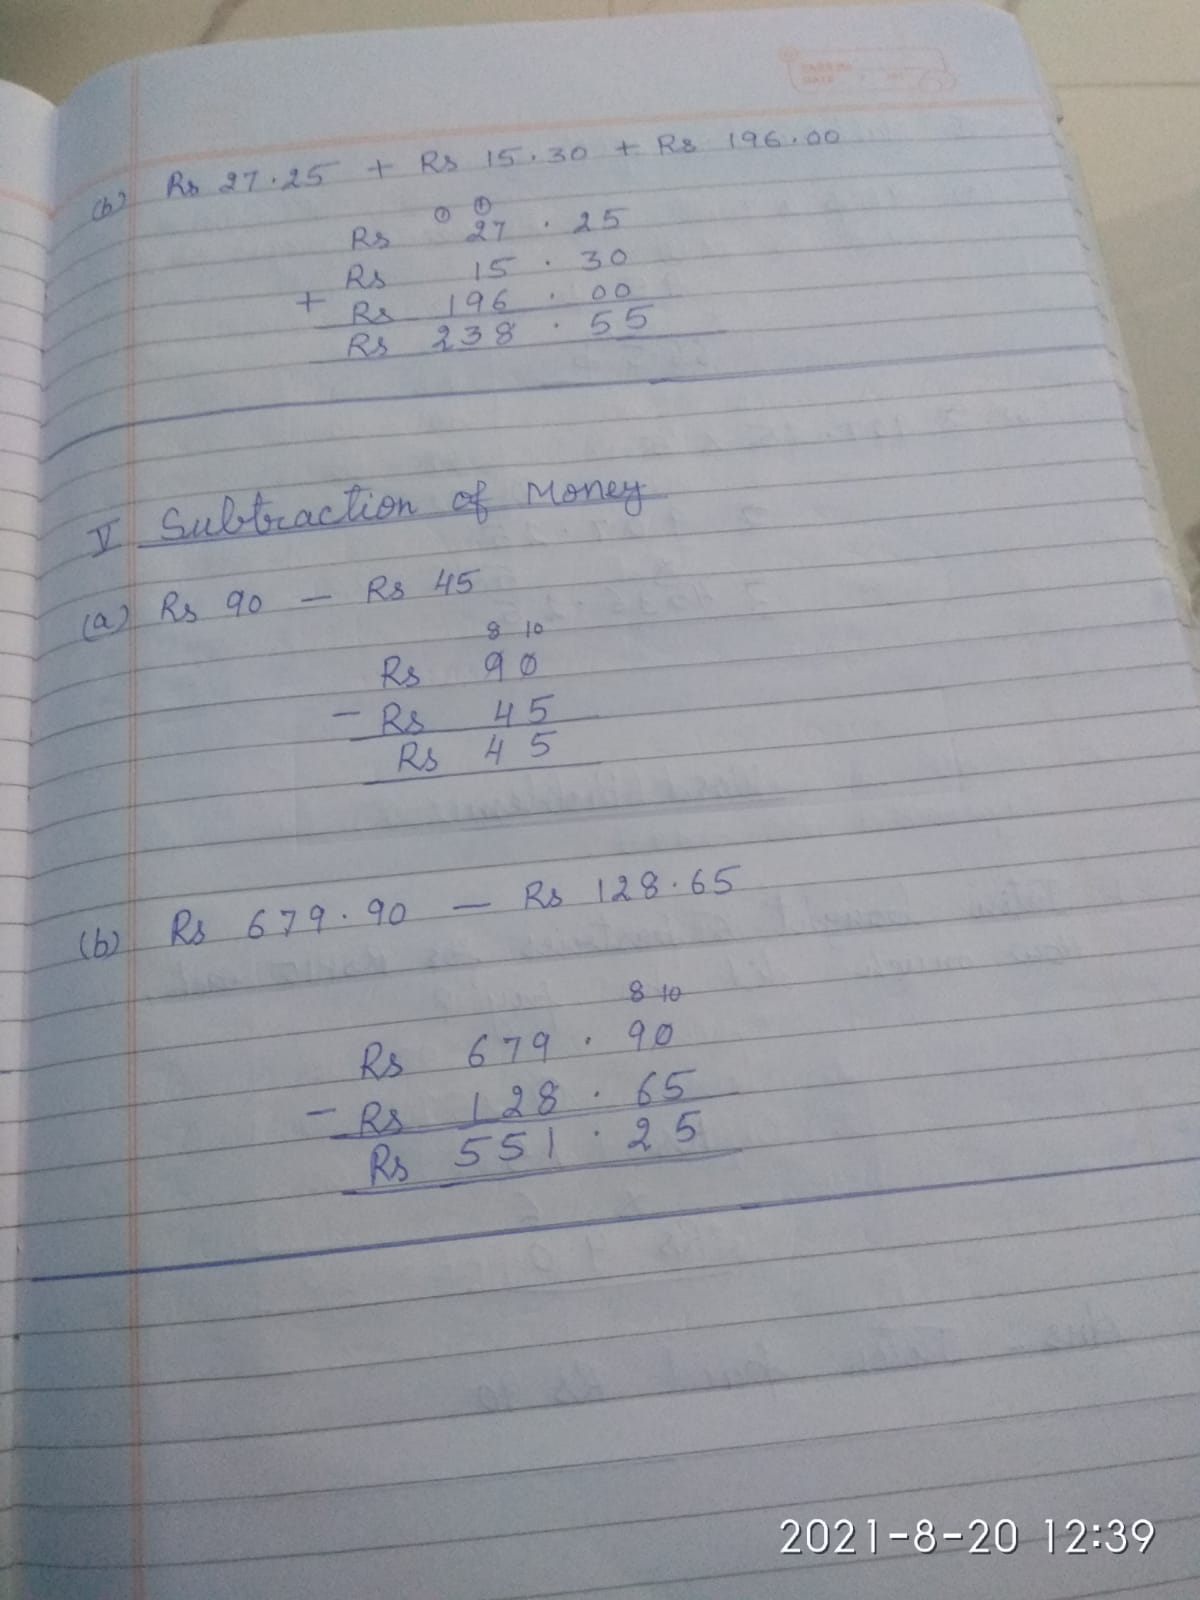 (b) Rs 27.25 + Rs 15.30 + Rs 196.00
① ①
Rs 27 . 25
Rs 15 . 30
+ Rs 196 . 00
Rs 238 . 55
V Subtraction of Money
(a) Rs 90 — Rs 45
8 10
Rs 90
- Rs 45
Rs 45
(b) Rs 679.90 — Rs 128.65
8 10
Rs 679 . 90
- Rs 128 . 65
Rs 551 . 25
2021-8-20 12:39